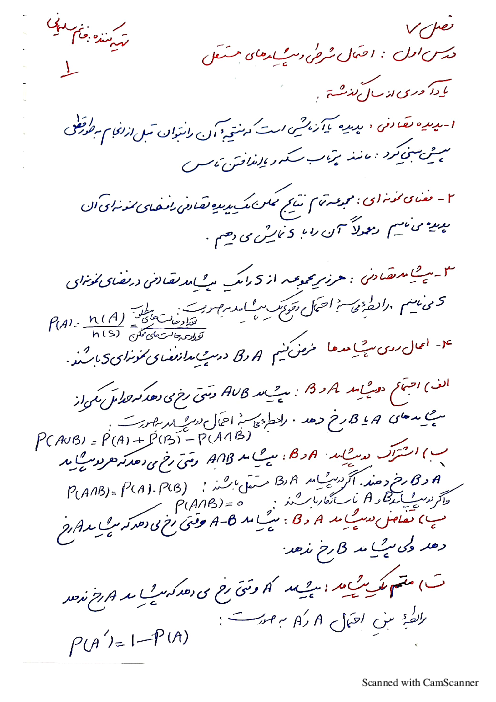 فصل ۷
تهیه کننده: خانم سلیمانی
درس اول: احتمال شرطی و پیشامدهای مستقل
۱
یادآوری از سال گذشته:
۱- پدیده تصادفی: پدیده یا آزمایشی است که نتیجهٔ آن را نتوان قبل از انجام به طور قطعی
پیش بینی کرد: مانند پرتاب سکه و یا انداختن تاس
۲- فضای نمونه‌ای: مجموعه تمام نتایج ممکن یک پدیده تصادفی را فضای نمونه‌ای آن
پدیده می نامیم و معمولاً آن را با S نمایش می دهیم.
۳- پیشامد تصادفی: هر زیر مجموعه از S را یک پیشامد تصادفی در فضای نمونه‌ای
S می نامیم. رابطهٔ محاسبهٔ احتمال وقوع یک پیشامد به صورت:
P(A) = n(A)/n(S) = تعداد حالت‌های مطلوب/تعداد حالت‌های ممکن
۴- اعمال روی پیشامدها فرض کنیم A و B دو پیشامد از فضای نمونه‌ای S باشند.
الف) اجتماع دو پیشامد A و B: پیشامد A∪B وقتی رخ می دهد که حداقل یکی از
پیشامدهای A یا B رخ دهد. رابطهٔ محاسبهٔ احتمال دو پیشامد به صورت:
P(A∪B) = P(A) + P(B) − P(A∩B)
ب) اشتراک دو پیشامد A و B: پیشامد A∩B وقتی رخ می دهد که هر دو پیشامد
A و B رخ دهند. اگر دو پیشامد A و B مستقل باشند: P(A∩B) = P(A).P(B)
و اگر دو پیشامد B و A ناسازگار باشند: P(A∩B) = 0
پ) تفاضل دو پیشامد A و B: پیشامد A-B وقتی رخ می دهد که پیشامد A رخ
دهد ولی پیشامد B رخ ندهد.
ت) متمم یک پیشامد: پیشامد A′ وقتی رخ می دهد که پیشامد A رخ ندهد
رابطهٔ بین احتمال A و A′ به صورت:
P(A′) = 1 − P(A)
Scanned with CamScanner